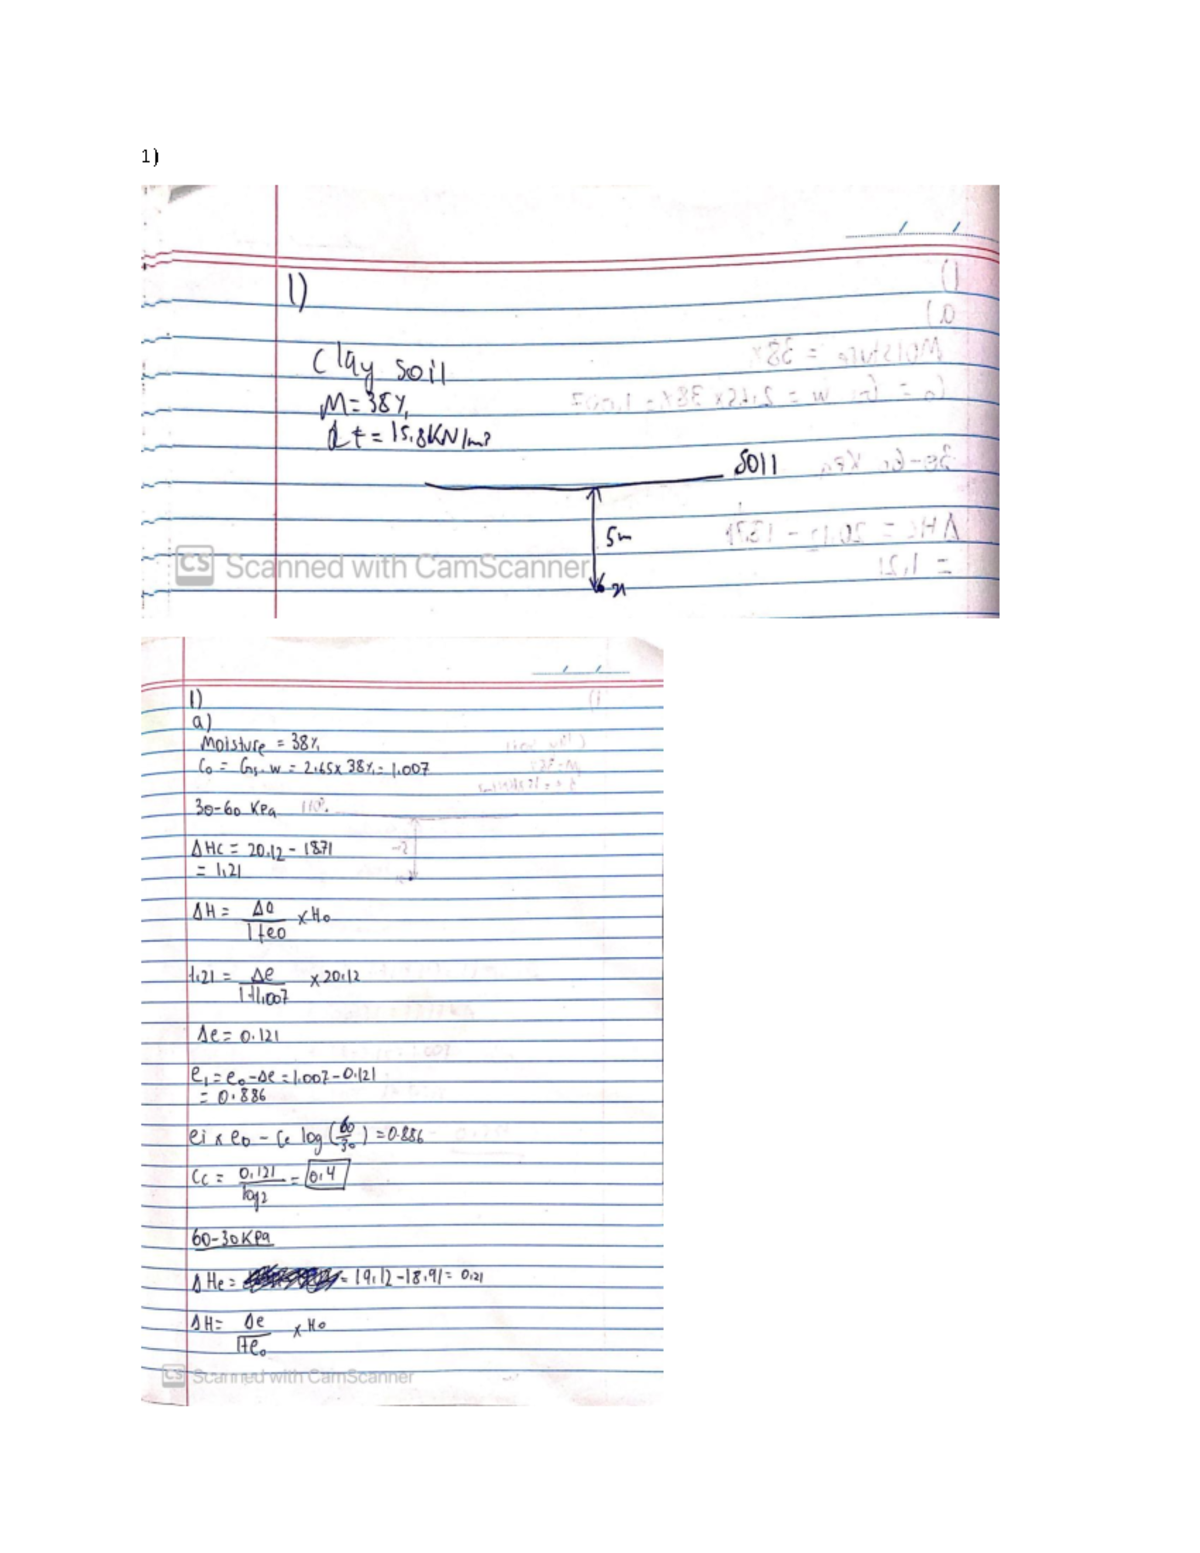 1)
1)
Clay soil
M=38%
γt = 15.8KN/m³
Soil
5m
x
CS Scanned with CamScanner
1)
a)
Moisture = 38%
Co = Gs.w = 2.65x 38% = 1.007
30-60 KPa
ΔHC = 20.12 - 18.71
= 1.21
ΔH = Δe / 1+e0 x H0
1.21 = Δe / 1+1.007 x 20.12
Δe = 0.121
e1 = e0 - Δe = 1.007 - 0.121
= 0.886
ei x e0 - Cc log (60/30) = 0.886
Cc = 0.121 / log2 = 0.4
60-30KPa
ΔHe = = 19.12 - 18.91 = 0.21
ΔH = Δe / 1+e0 x H0
CS Scanned with CamScanner